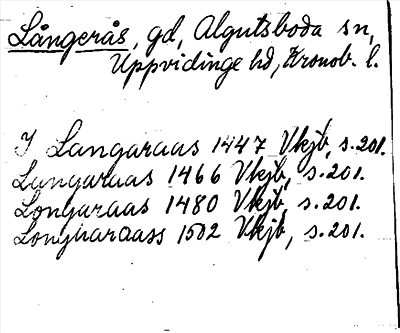 Långerås, gd, Algutsboda sn,
Uppvidinge hd, Kronob. l.
I Langaraas 1447 Vkjb, s. 201.
Langaraas 1466 Vkjb, s. 201.
Longaraas 1480 Vkjb, s. 201.
Longharaass 1502 Vkjb, s. 201.